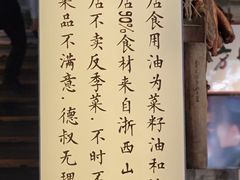 店食用油为菜籽油和
店90%食材来自浙西山
店不卖反季菜·不时不
菜品不满意·德叔无理